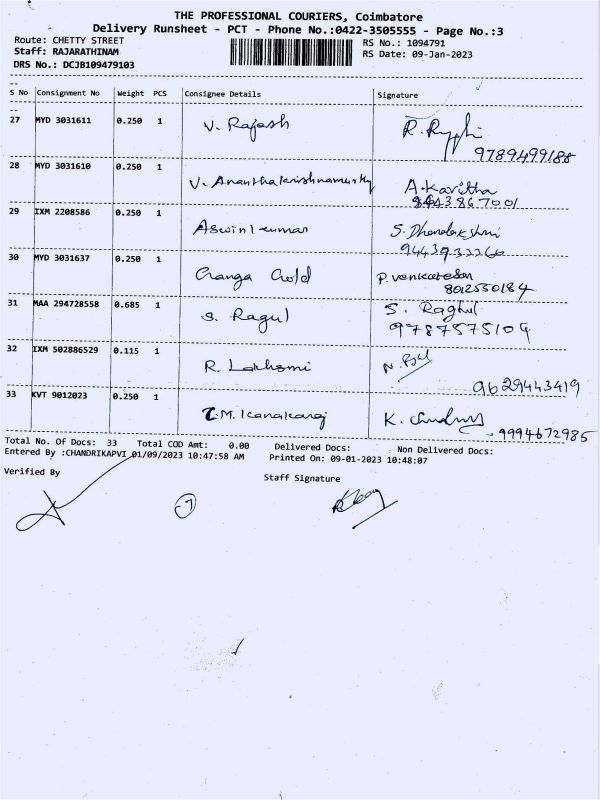 THE PROFESSIONAL COURIERS, Coimbatore
Delivery Runsheet - PCT - Phone No.:0422-3505555 - Page No.:3
Route: CHETTY STREET
RS No.: 1094791
Staff: RAJARATHINAM
RS Date: 09-Jan-2023
DRS No.: DCJB109479103
S No Consignment No Weight PCS Consignee Details Signature
27 MYD 3031611 0.250 1 V. Rajash
9789499188
28 MYD 3031610 0.250 1 V. Ananthakrishnamurthy A. Kavitha
29 IXM 2208586 0.250 1 Aswinkumar
30 MYD 3031637 0.250 1 Ganga Gold P. Venkatesan
8012550184
31 MAA 294728558 0.685 1 S. Ragul S. Raghul
9787575104
32 IXM 502886529 0.115 1 R. Lakhsmi
9629443419
33 KVT 9012023 0.250 1 T.M. Kanakaraj K.
9994672985
Total No. Of Docs: 33 Total COD Amt: 0.00 Delivered Docs: Non Delivered Docs:
Entered By :CHANDRIKAPVI 01/09/2023 10:47:58 AM Printed On: 09-01-2023 10:48:07
Verified By
Staff Signature
7